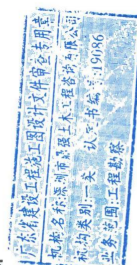 广东省建设工程施工图设计文件审查专用章
机构名称:深圳市 强土木工程咨询有限公司
机构类别:一类 认定书编号:19086
业务范围:工程勘察